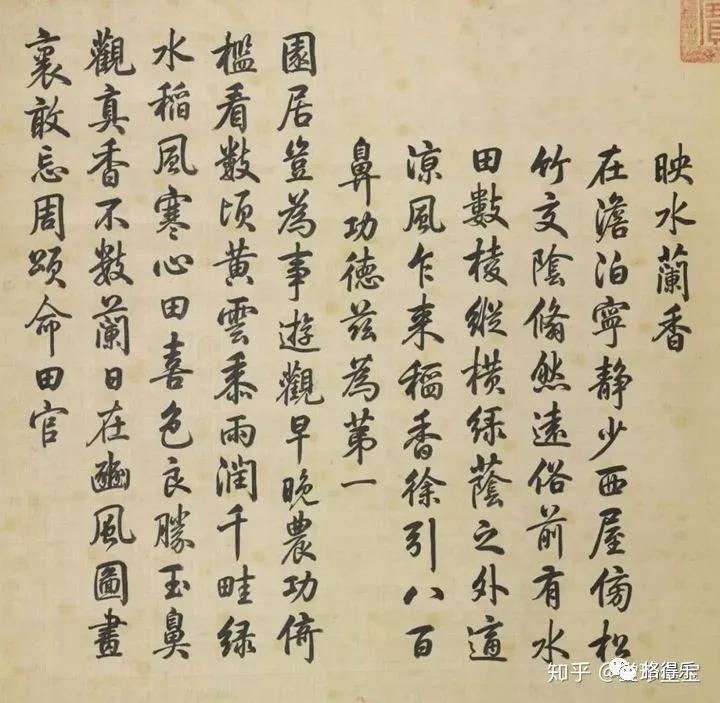 映水蘭香
在澹泊寧静少西屋傍松
竹交陰翛然遠俗前有水
田數棱縱横绿蔭之外適
凉風乍来稲香徐引八百
鼻功德兹為第一
園居豈為事遊觀早晚農功倚
檻看數頃黄雲黍雨潤千畦緑
水稻風寒心田喜色良勝玉鼻
觀真香不數蘭日在豳風圖畫
裏敢忘周頌命田官
知乎
珞得乐